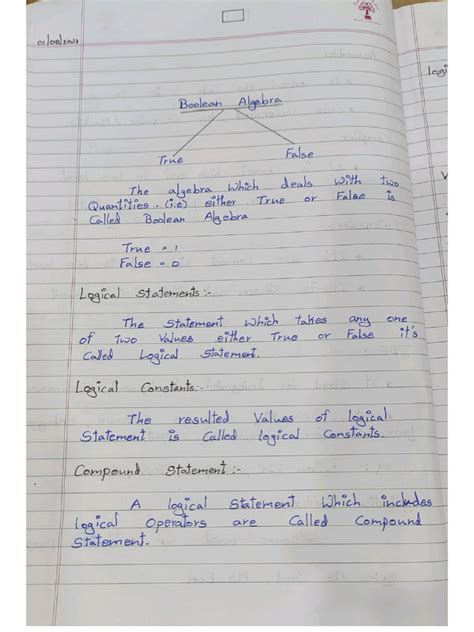 01/08/2024
Boolean Algebra
True False
The algebra which deals with two
Quantities. (i.e) either True or False is
Called Boolean Algebra
True = 1
False = 0
Logical Statements:-
The Statement which takes any one
of Two Values either True or False it's
Called Logical Statement.
Logical Constants:-
The resulted Values of logical
Statement is Called logical Constants.
Compound Statement:-
A logical Statement Which includes
logical Operators are Called Compound
Statement.
logi